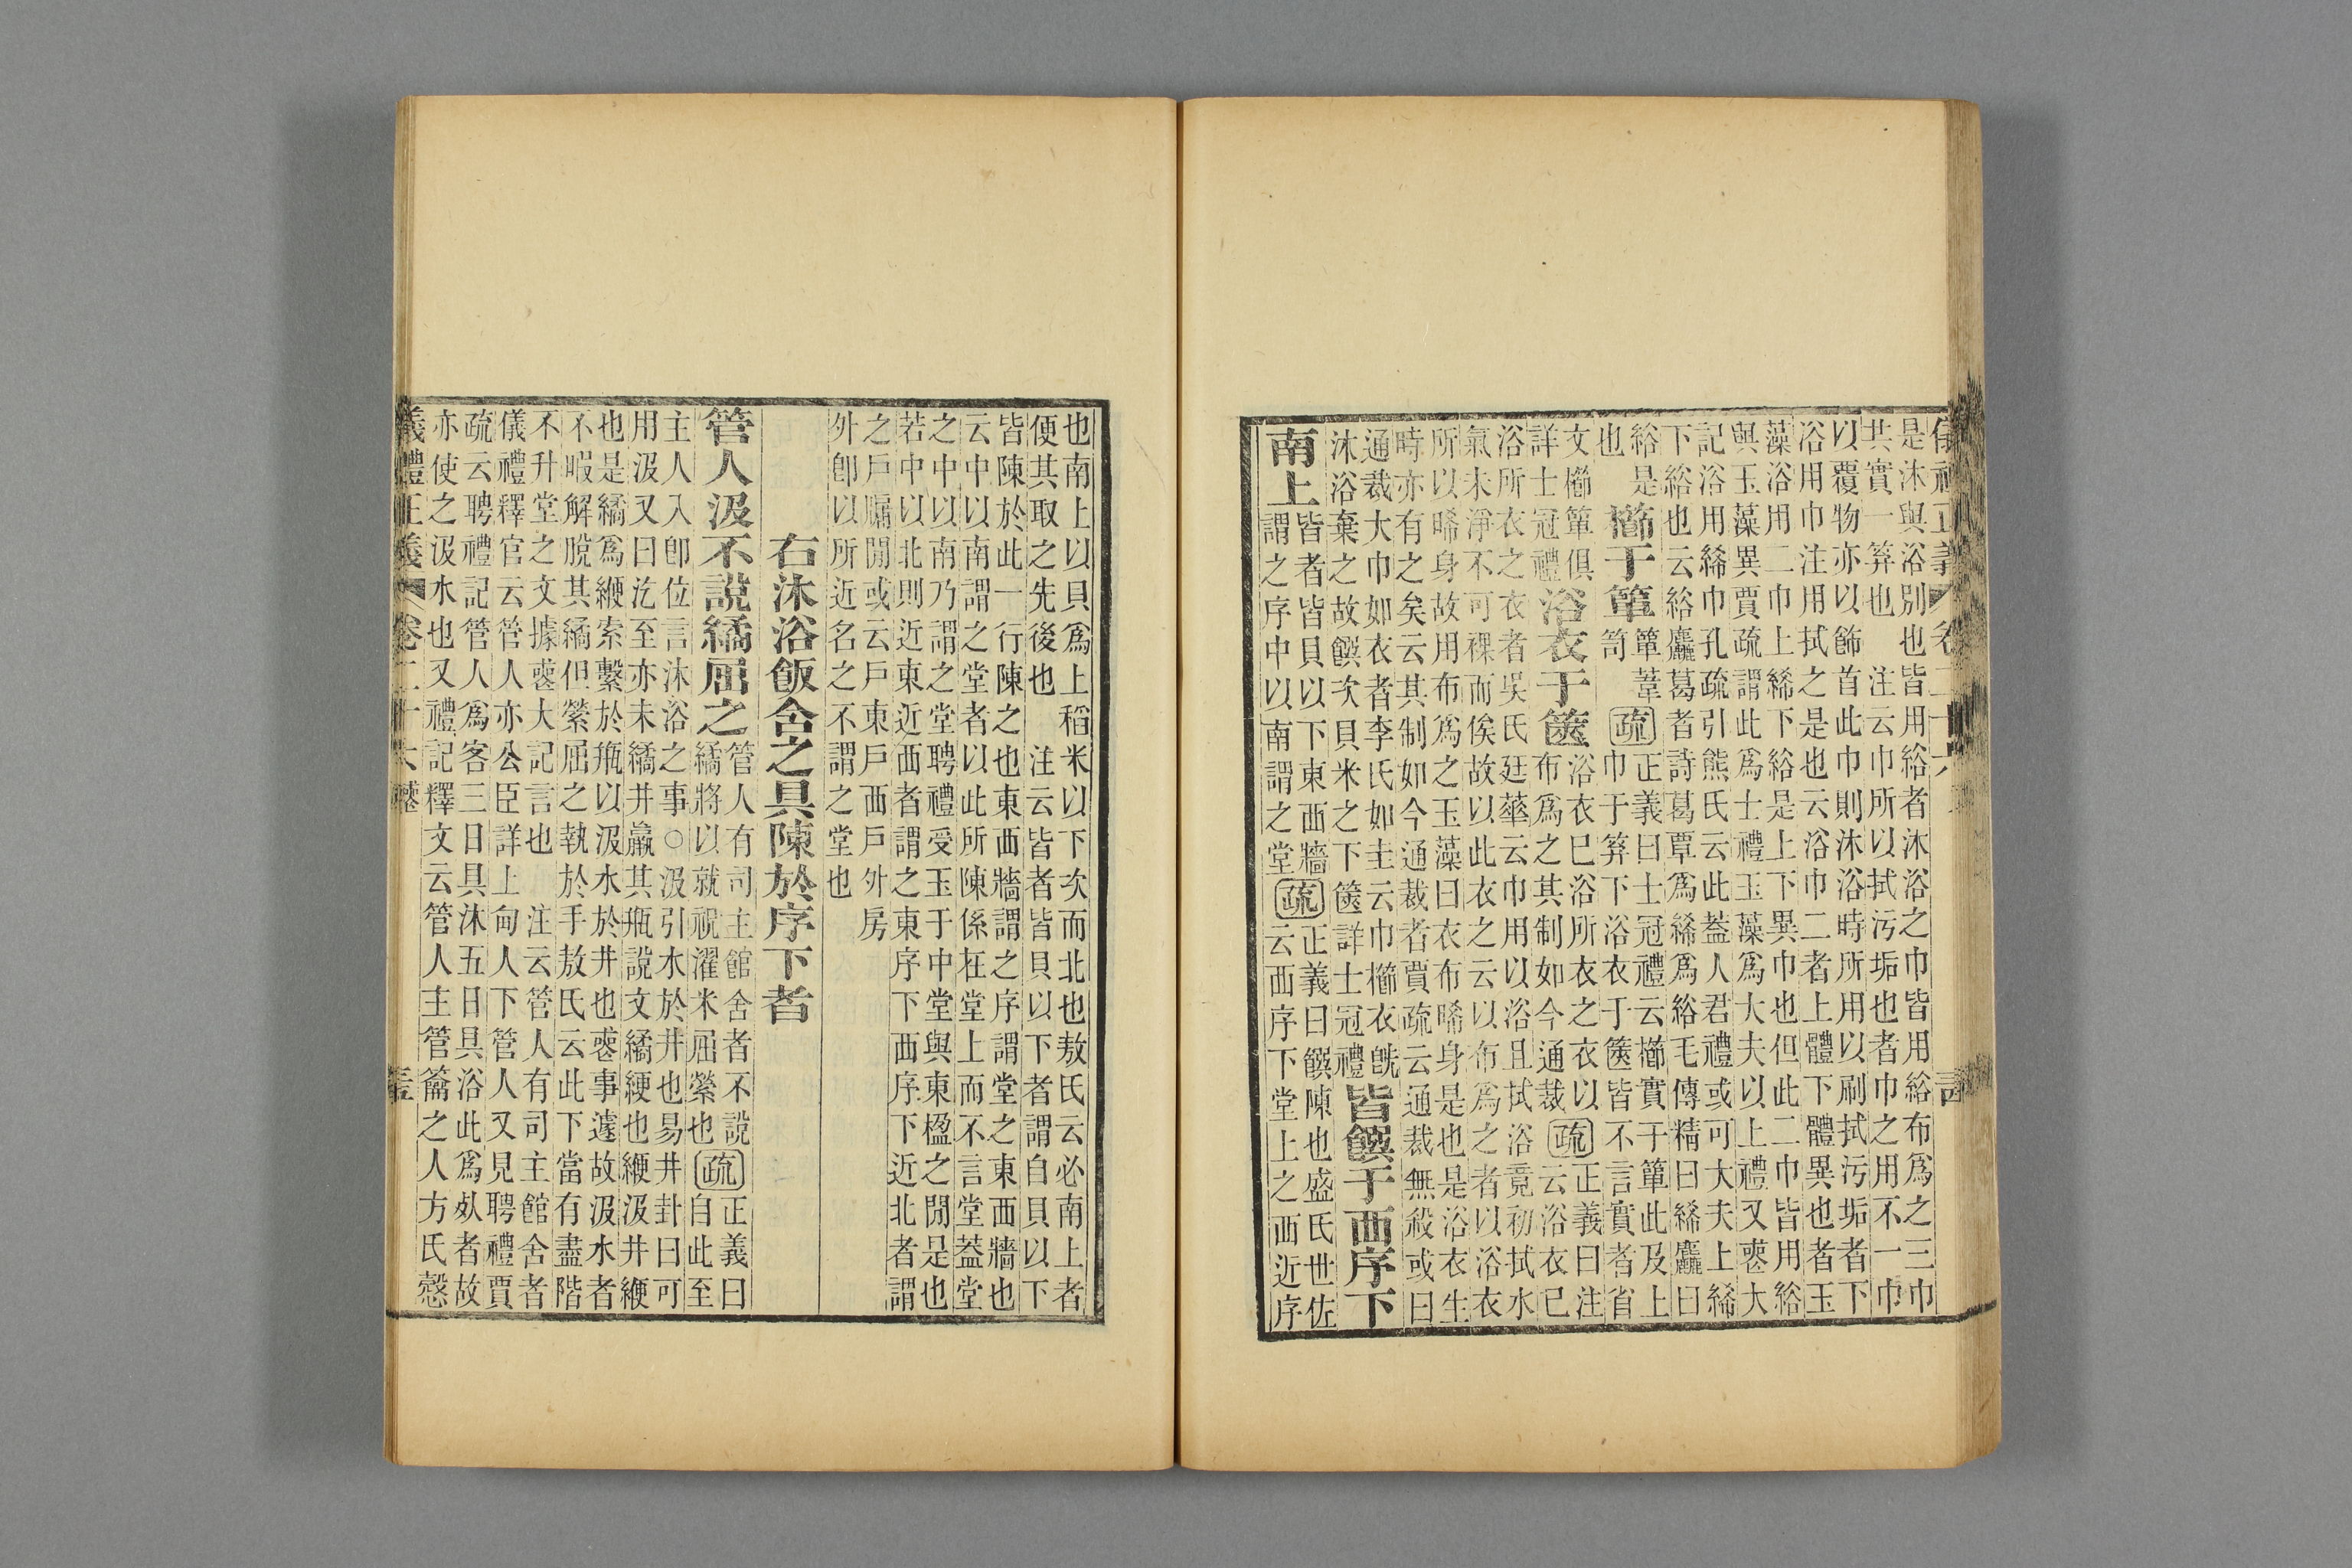 是沐與浴別也皆用綌者沐浴之巾皆用綌布爲之三巾
共實一笲也　注云巾所以拭污垢也者巾之用不一巾
以覆物亦以飾首此巾則沐浴時所用以刷拭污垢者下
浴用巾注用拭之是也云浴巾二者上體下體異也者玉
藻浴用二巾上絺下綌是上下異巾也但此二巾皆用綌
與玉藻異賈疏謂此爲士禮玉藻爲大夫以上禮又喪大
記浴用絺巾孔疏引熊氏云此蓋人君禮或可大夫上絺
下綌也云綌麤葛者詩葛覃爲絺爲綌毛傳精曰絺麤曰
綌是
也
櫛于簞
簞葦
笥
疏
正義曰士冠禮云櫛實于簞此及上
巾于笲下浴衣于篋皆不言實者省
文櫛簞俱
詳士冠禮
浴衣于篋
浴衣已浴所衣之衣以
布爲之其制如今通裁
疏
正義曰注
云浴衣已
浴所衣之衣者吳氏廷華云巾用以浴且拭浴竟初拭水
氣未淨不可裸而俟故以此衣之云以布爲之者以浴衣
所以晞身故用布爲之玉藻曰衣布晞身是也是浴衣生
時亦有之矣云其制如今通裁者賈疏云通裁無殺或曰
通裁大巾如衣者李氏如圭云巾櫛衣旣
沐浴棄之故饌次貝米之下篋詳士冠禮
皆饌于西序下
南上
皆者皆貝以下東西牆
謂之序中以南謂之堂
疏
正義曰饌陳也盛氏世佐
云西序下堂上之西近序
也南上以貝爲上稻米以下次而北也敖氏云必南上者
便其取之先後也　注云皆者皆貝以下者謂自貝以下
皆陳於此一行陳之也東西牆謂之序謂堂之東西牆也
云中以南謂之堂者以此所陳係在堂上而不言堂蓋堂
之中以南乃謂之堂聘禮受玉于中堂與東楹之閒是也
若中以北則近東近西者謂之東序下西序下近北者謂
之戶牖閒或云戶東戶西戶外房
外卽以所近名之不謂之堂也
右沐浴飯含之具陳於序下者
管人汲不說繘屈之
管人有司主館舍者不說
繘將以就祝濯米屈縈也
疏
正義曰
自此至
主人入卽位言沐浴之事○汲引水於井也易井卦曰可
用汲又曰汔至亦未繘井羸其瓶說文繘綆也綆汲井綆
也是繘爲綆索繫於瓶以汲水於井也喪事遽故汲水者
不暇解脫其繘但縈屈之執於手敖氏云此下當有盡階
不升堂之文據喪大記言也　注云管人有司主館舍者
儀禮釋官云管人亦公臣詳上甸人下管人又見聘禮賈
疏云聘禮記管人爲客三日具沐五日具浴此爲死者故
亦使之汲水也又禮記釋文云管人主管籥之人方氏愨
儀禮正義　卷二十六